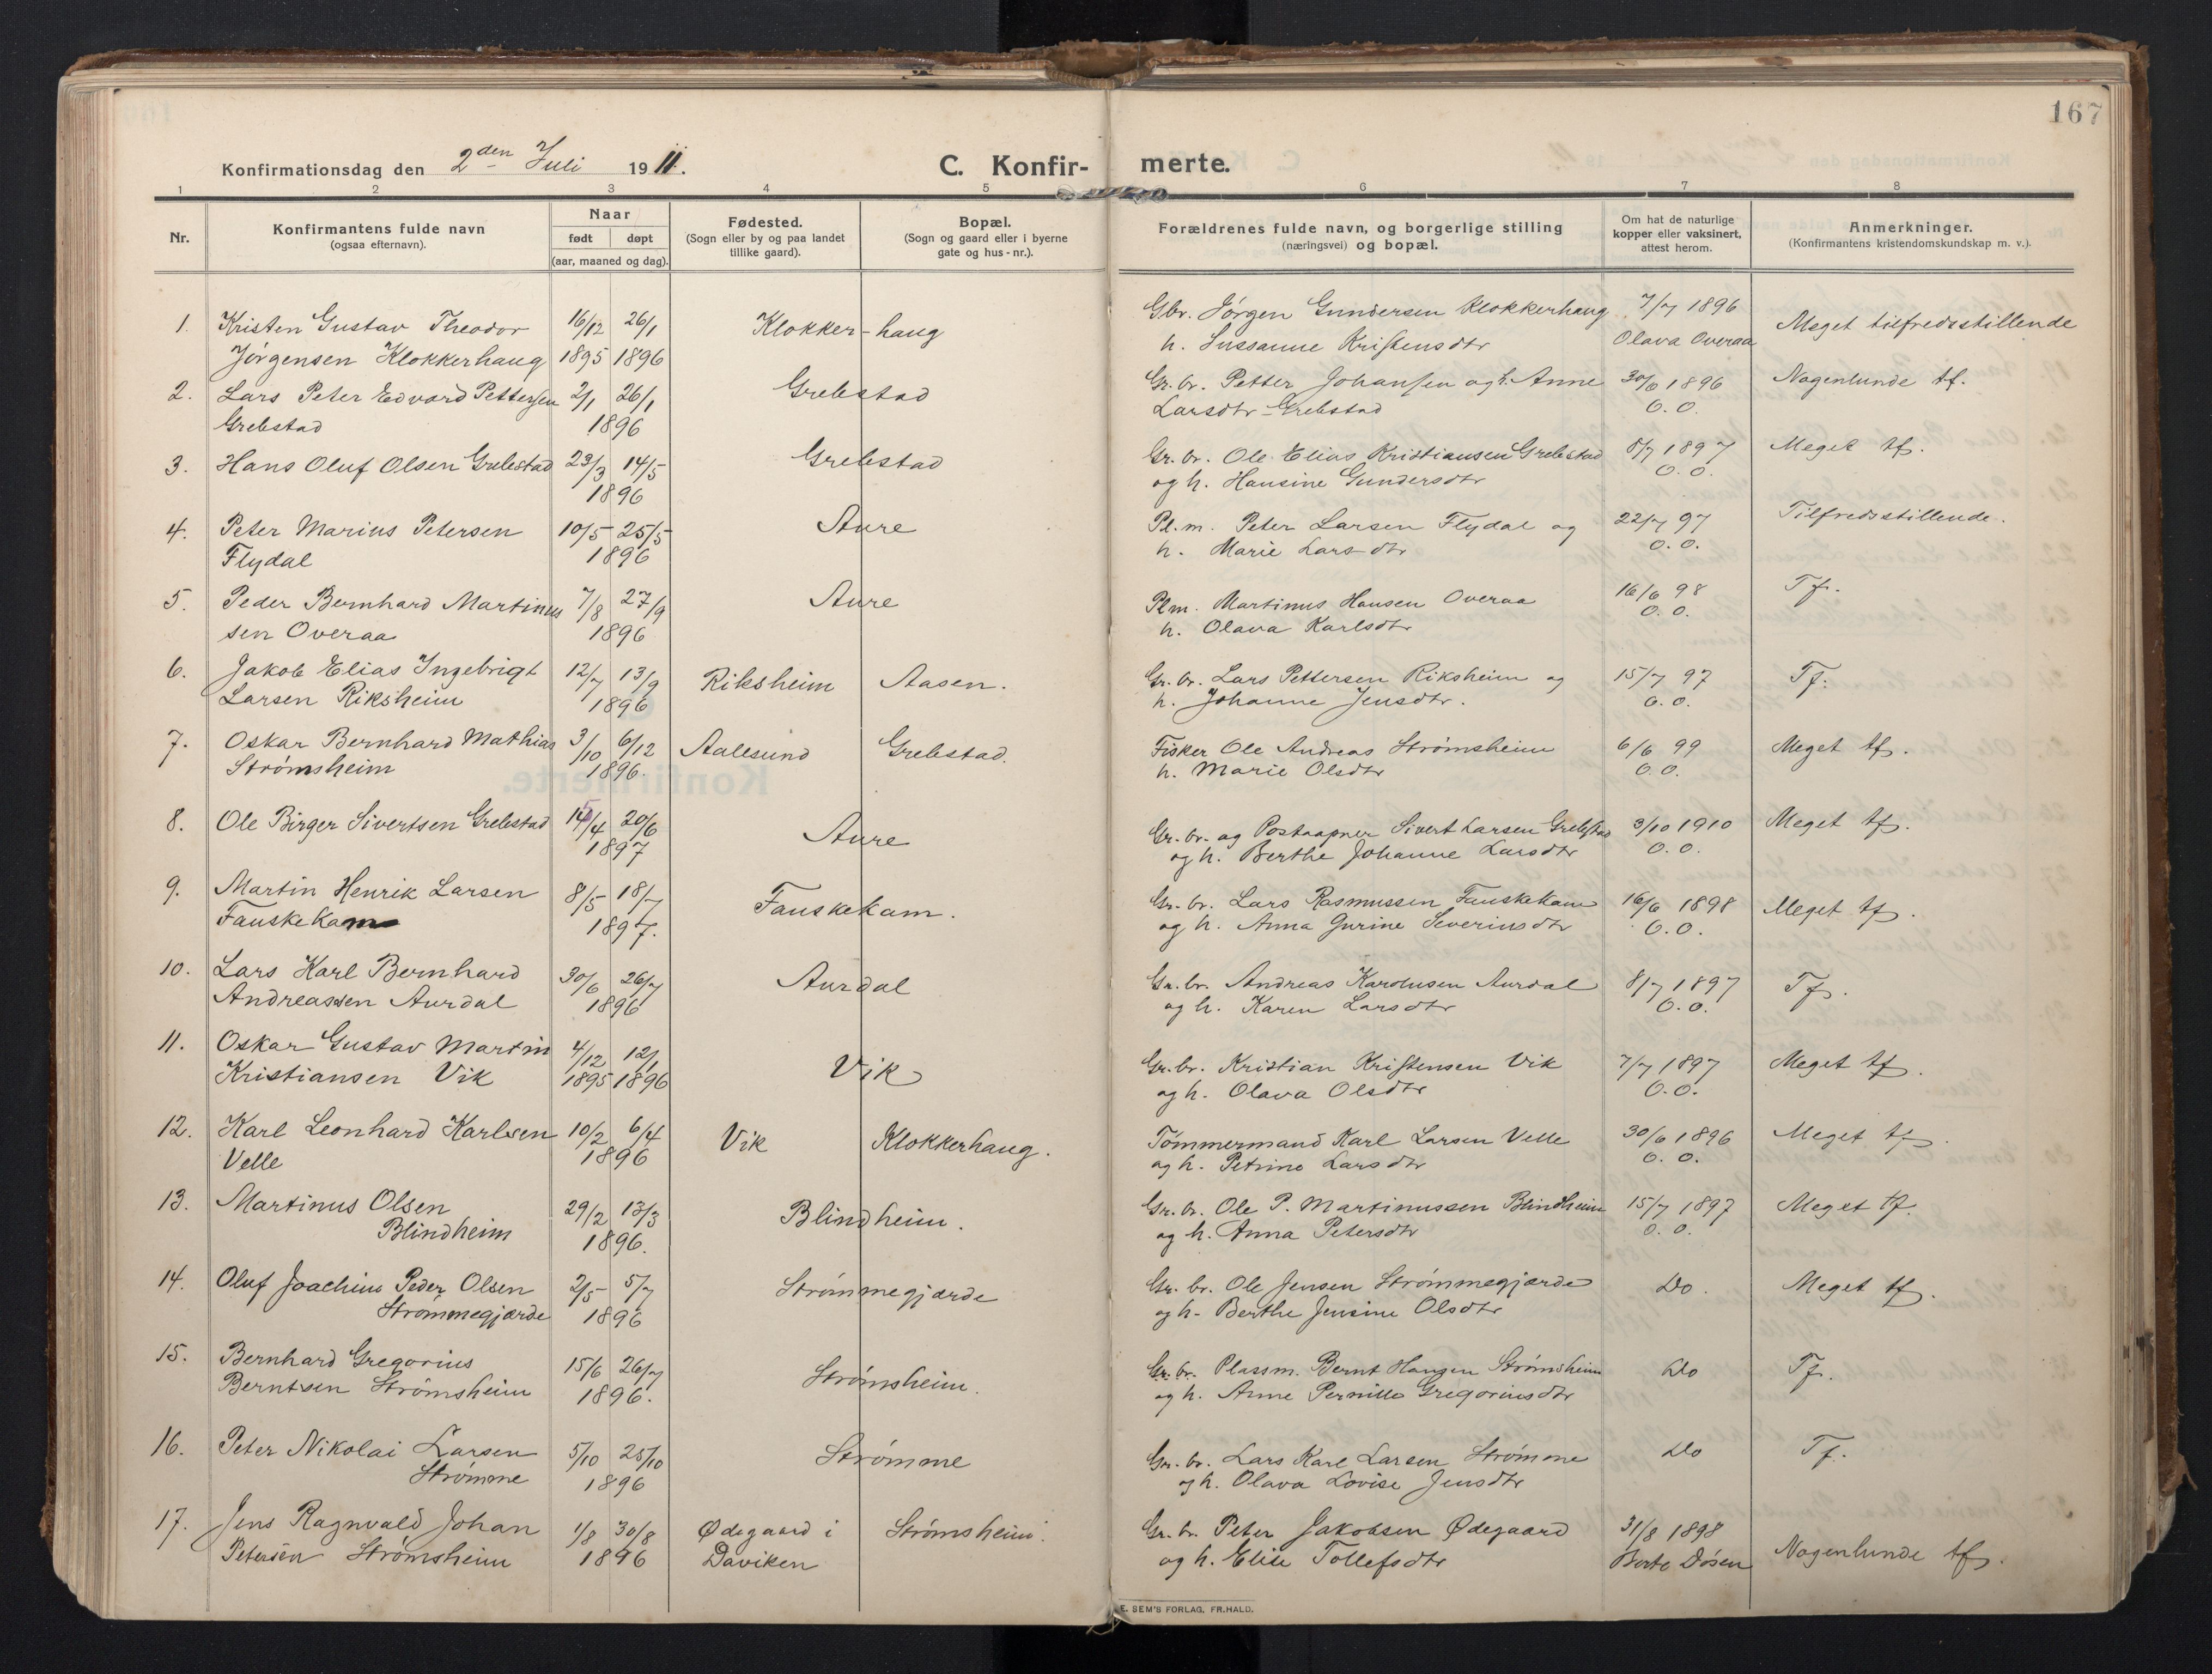 167
Konfirmationsdag den 2den Juli 1911.
C. Konfir-
merte.
1 2 3 4 5 6 7 8
Nr.
Konfirmantens fulde navn
(ogsaa efternavn).
Naar
født døpt
(aar, maaned og dag).
Fødested.
(Sogn eller by og paa landet
tillike gaard).
Bopæl.
(Sogn og gaard eller i byerne
gate og hus-nr.).
Forældrenes fulde navn, og borgerlige stilling
(næringsvei) og bopæl.
Om hat de naturlige
kopper eller vaksinert,
attest herom.
Anmerkninger.
(Konfirmantens kristendomskundskap m. v.).
1. Kristen Gustav Theodor 16/12 26/1 Klokker-haug Gbr. Jørgen Gundersen Klokkerhaug 7/7 1896 Meget tilfredsstillende
Jørgensen Klokkerhaug 1895 1896 h. Sussanne Kristensdtr Olava Overaa
2. Lars Peter Edvard Pettersen 2/1 26/1 Grebstad Gr. br. Petter Johansen og h. Anne 30/6 1896 Nogenlunde tf.
Grebstad 1896 Larsdtr Grebstad O. O.
3. Hans Oluf Olsen Grebstad 23/3 14/5 Grebstad Gr. br. Ole Elias Kristiansen Grebstad 8/7 1897 Meget tf.
1896 og h. Hansine Gundersdtr O. O.
4. Peter Marius Petersen 10/5 25/5 Aure Pl. m. Peter Larsen Flydal og 22/7 97 Tilfredsstillende.
Flydal 1896 h. Marie Larsdtr O. O.
5. Peder Bernhard Martinus 7/8 27/9 Aure Plm. Martinus Hansen Overaa 16/6 98 Tf.
sen Overaa 1896 h. Olava Karlsdtr O. O.
6. Jakob Elias Ingebrigt 12/7 13/9 Riksheim Aasen. Gr. br. Lars Pettersen Riksheim og 15/7 97 Tf.
Larsen Riksheim 1896 h. Johanne Jensdtr. O. O.
7. Oskar Bernhard Mathias 3/10 6/12 Aalesund Grebstad. Fisker Ole Andreas Strømsheim 6/6 99 Meget tf.
Strømsheim 1896. h. Marie Olsdtr O. O.
8. Ole Birger Sivertsen Grebstad /4 20/6 Aure Gr. br. og Postaapner Sivert Larsen Grebstad 3/10 1910 Meget tf.
1897 og h. Berthe Johanne Larsdtr O. O.
9. Martin Henrik Larsen 8/5 18/7 Fauskekam. Gr. br. Lars Rasmussen Fauskekam 16/6 1898 Meget tf.
Fauskekam 1897. og h. Anna Gurine Severinsdtr O. O.
10. Lars Karl Bernhard 30/6 26/7 Aurdal Gr. br. Andreas Karolusen Aurdal 8/7 1897 Tf.
Andreassen Aurdal 1896 og h. Karen Larsdtr O. O.
11. Oskar Gustav Martin 4/12 12/1 Vik Gr. br. Kristian Kristensen Vik 7/7 1897 Meget tf.
Kristiansen Vik 1895 1896 og h. Olava Olsdtr O. O.
12. Karl Leonhard Karlsen 10/2 6/4 Vik Klokkerhaug. Tømmermand Karl Larsen Velle 30/6 1896 Meget tf.
Velle 1896 og h. Petrine Larsdtr O. O.
13. Martinus Olsen 29/2 13/3 Blindheim. Gr. br. Ole P. Martinussen Blindheim 15/7 1897 Meget tf.
Blindheim 1896. og h. Anna Petersdtr O. O.
14. Oluf Joachim Peder Olsen 2/5 5/7 Strømmegjærde Gr. br. Ole Jensen Strømmegjærde Do. Meget tf.
Strømmegjærde 1896 og h. Berthe Jensine Olsdtr
15. Bernhard Gregorius 15/6 26/7 Strømsheim. Gr. br. Plassm. Bernt Hansen Strømsheim Do Tf.
Berntsen Strømsheim 1896. og h. Anne Pernille Gregoriusdtr
16. Peter Nikolai Larsen 5/10 25/10 Strømme Gr. br. Lars Karl Larsen Strømme Do Tf.
Strømme 1896 og h. Olava Lovise Jensdtr
17. Jens Ragnvald Johan 1/8 30/8 Ødegaard i Strømsheim. Gr. br. Peter Jakobsen Ødegaard 31/8 1898 Nogenlunde tf.
Petersen Strømsheim 1896 Daviken og h. Elise Tollefsdtr Berte Døsen
E. SEM'S FORLAG, FR.HALD.